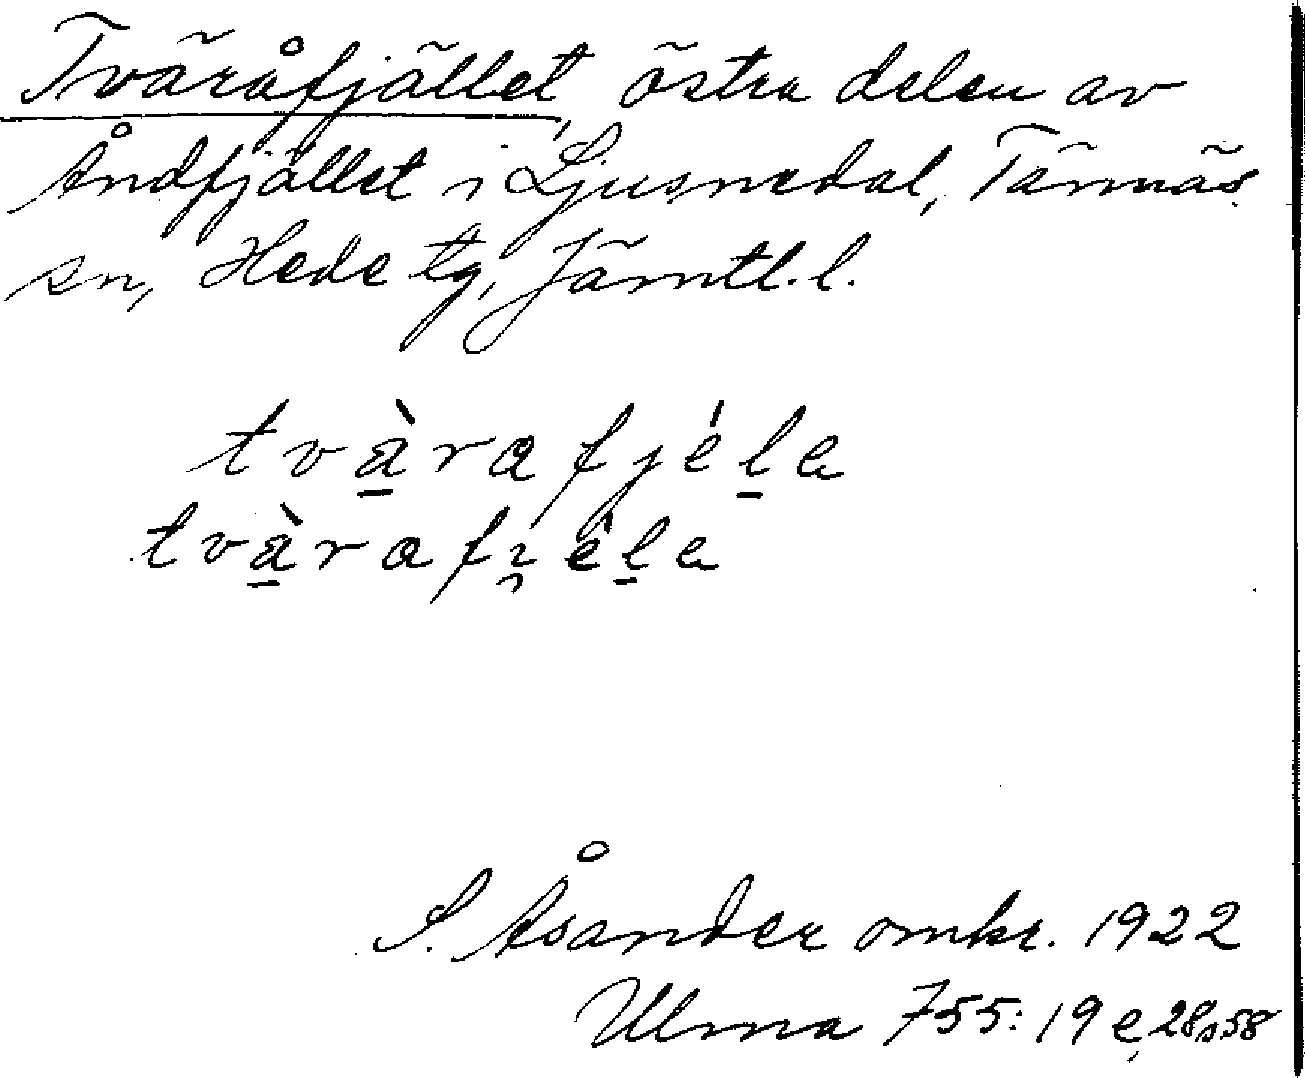 Tväråfjället, östra delen av
Åndfjället i Ljusnedal, Tännäs
sn, Hede tg, Jämtl. l.
tvàrafjéla
tvàrafi̯éla
S. Åsander omkr. 1922
Ulma 755: 19 e, 28, 58